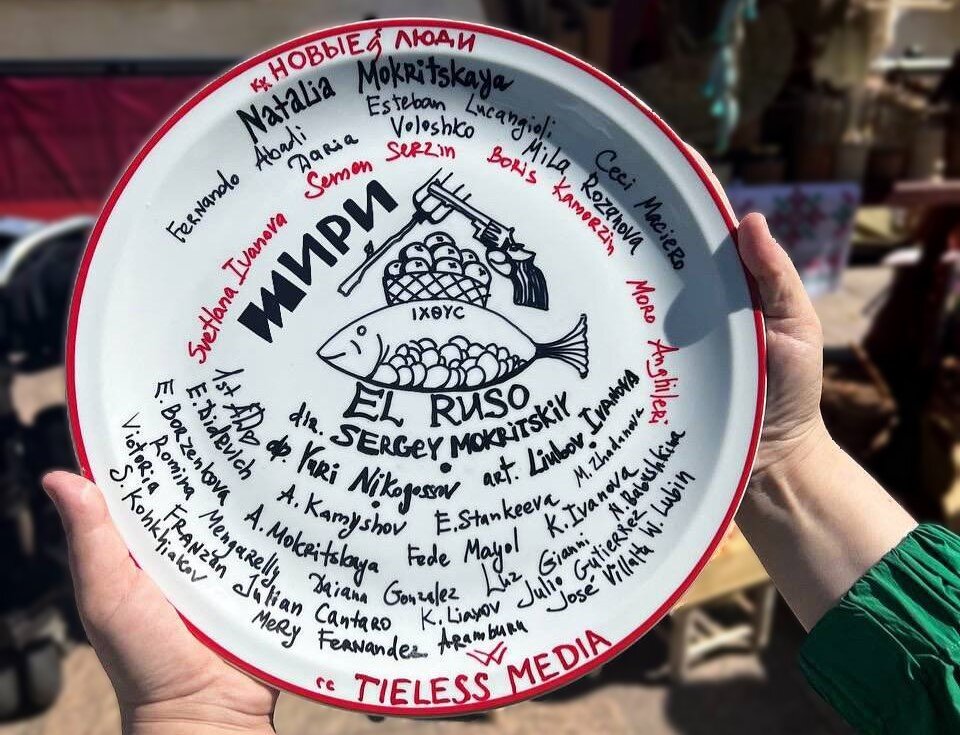 кк НОВЫЕ ЛЮДИ
Natalia Mokritskaya
Esteban Lucangioli
Fernando Abadi
Daria Voloshko
Mila Rozanova
Ceci Maciero
Svetlana Ivanova
Semen Serzin
Boris Kamorzin
Moro Anghileri
МИРИ
ΙΧΘΥC
EL RUSO
dir. SERGEY MOKRITSKIY
op. Yuri Nikogossov
art. Liubov Ivanova
1st AD
E. Didevich
A. Kamyshov
E. Stankeeva
M. Zhdanova
E. Borzenkova
A. Mokritskaya
Fede Mayol
K. Ivanova
N. Babushkina
Romina Mengarelly
Daiana Gonzalez
Luz Gianni
Julio Gutierrez
W. Lubin
Victoria FRANZÁN
Julian Cantaro
K. Liayov
José Villalta
S. Kokhliakov
MeRy Fernandez Aramburu
cc TIELESS MEDIA